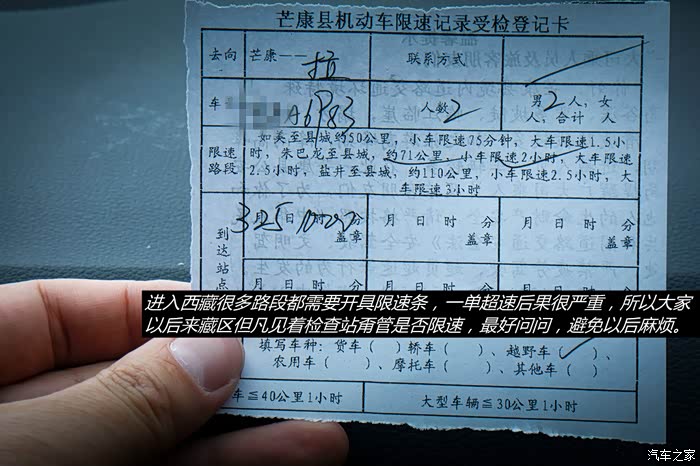 芒康县机动车限速记录受检登记卡
去向 芒康——拉 联系方式
车 A6P83 人数 2 男2人,女
人,合计 人
限速路段 如美至县城约50公里,小车限速75分钟,大车限速1.5小
时,朱巴龙至县城,约71公里,小车限速2小时,大车限速
2.5小时,盐井至县城,约110公里,小车限速2.5小时,大
车限速3小时
到达站点
3月25日10时 分 月 日 时 分 月 日 时 分
盖章 盖章 盖章
月 日 时 分 月 日 时 分 月 日 时 分
进入西藏很多路段都需要开具限速条,一单超速后果很严重,所以大家
以后来藏区但凡见着检查站甭管是否限速,最好问问,避免以后麻烦。
填写车种:货车( )轿车( )、越野车( )、
农用车( )、摩托车( )、其他车( )
车≦40公里1小时 大型车辆≦30公里1小时
汽车之家